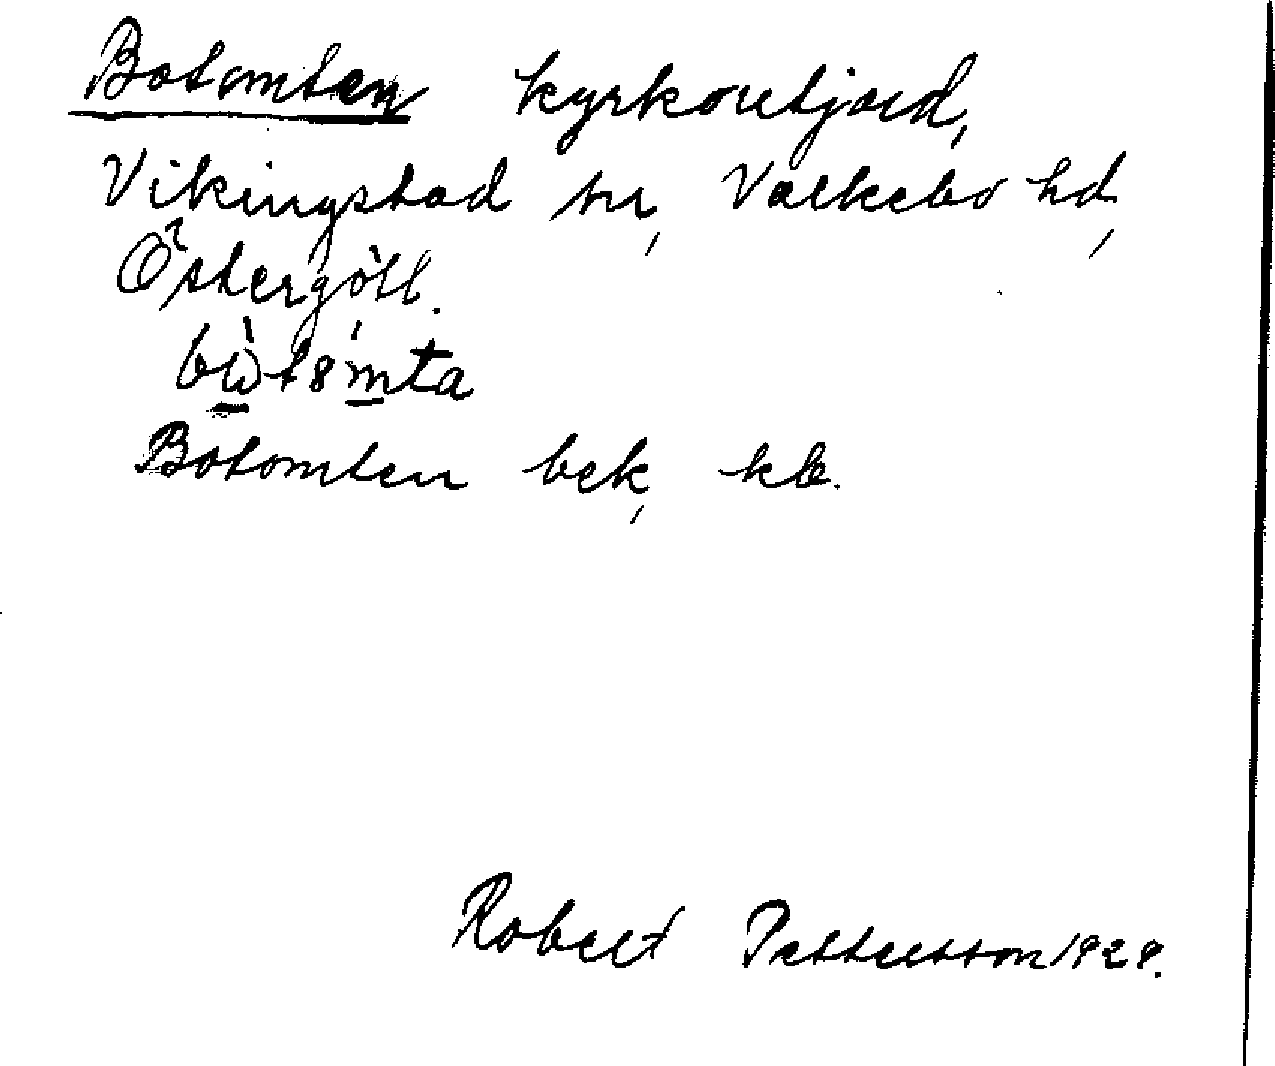 Botomten kyrkoutjord,
Vikingstad sn, Valkebo hd,
Östergötl.
Botomten bek, kb.
Robert Pettersson 1929.